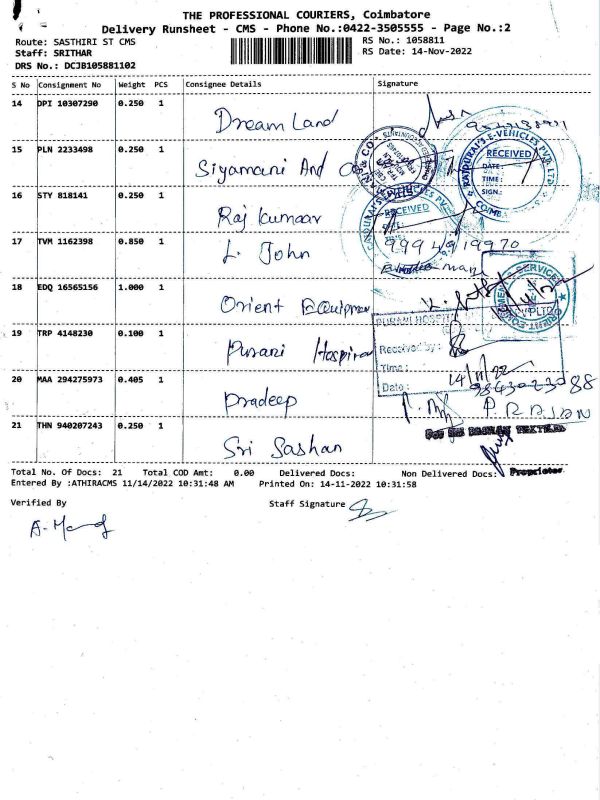 THE PROFESSIONAL COURIERS, Coimbatore
Delivery Runsheet - CMS - Phone No.:0422-3505555 - Page No.:2
Route: SASTHIRI ST CMS
RS No.: 1058811
Staff: SRITHAR
RS Date: 14-Nov-2022
DRS No.: DCJB105881102
S No Consignment No Weight PCS Consignee Details Signature
14 DPI 10307290 0.250 1 Dream Land
15 PLN 2233498 0.250 1 Siyamani And Co
RECEIVED
DATE:
TIME:
SIGN.:
16 STY 818141 0.250 1 Raj Kumaar
RECEIVED
17 TVM 1162398 0.850 1 L. John 9994919970
18 EDQ 16565156 1.000 1 Orient Equipmen
19 TRP 4148230 0.100 1 Purani Hospital
PURANI HOSPITAL
Received by:
Time:
Date: 14/11/22
20 MAA 294275973 0.405 1 Pradeep
9843023088
P R RAJAN
21 THN 940207243 0.250 1 Sri Sashan
Proprietor
Total No. Of Docs: 21 Total COD Amt: 0.00 Delivered Docs: Non Delivered Docs:
Entered By :ATHIRACMS 11/14/2022 10:31:48 AM Printed On: 14-11-2022 10:31:58
Verified By Staff Signature